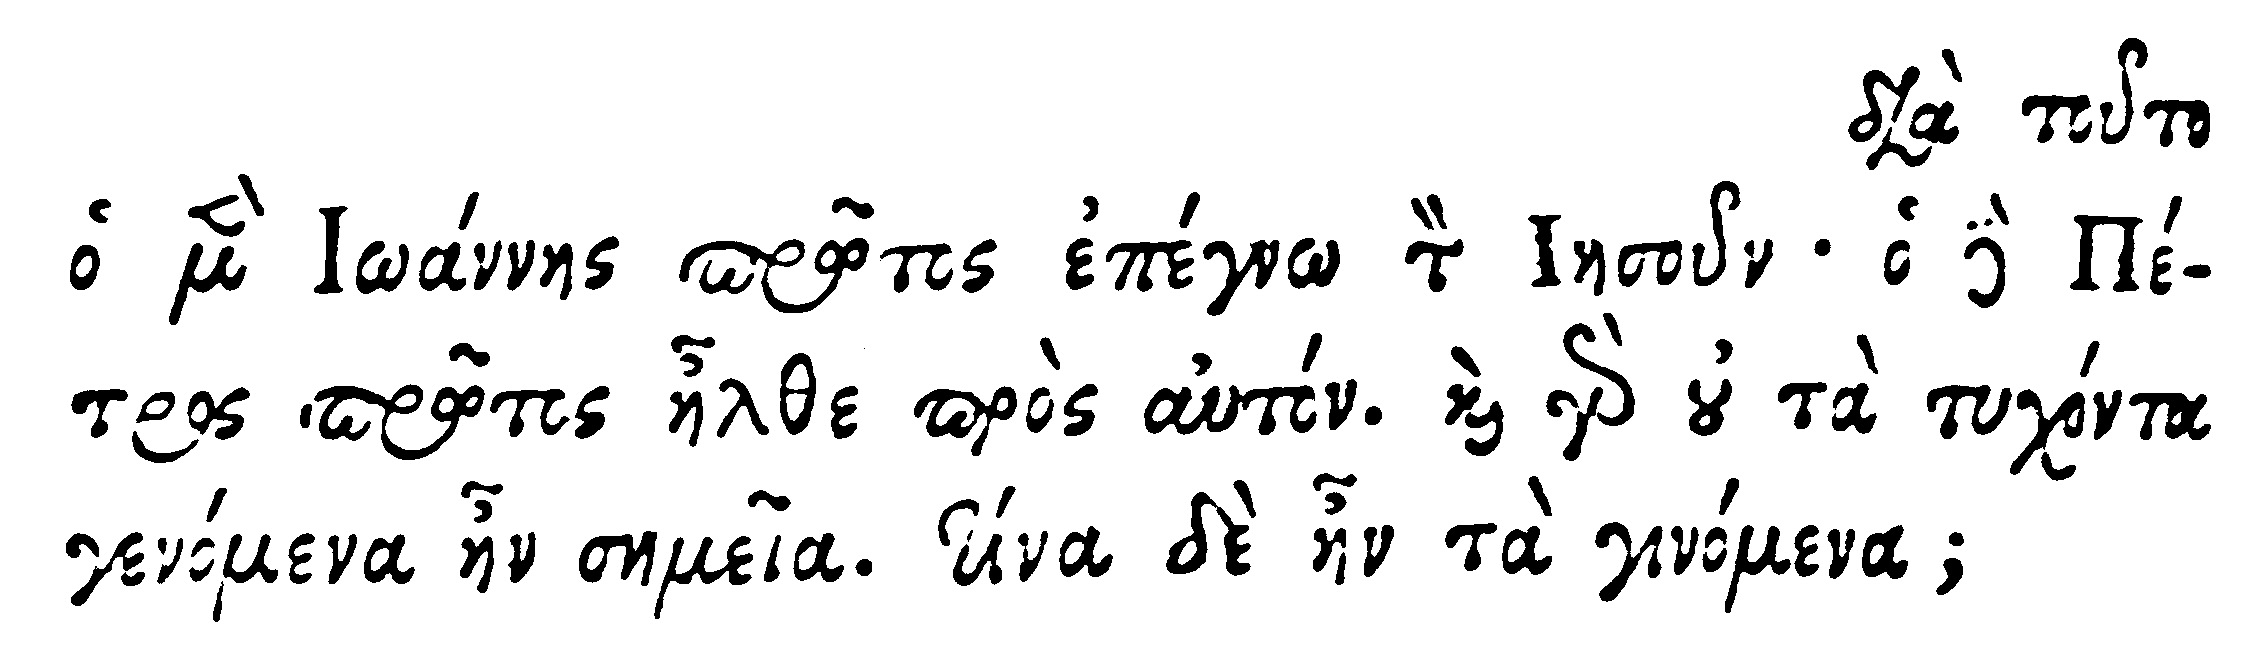 διὰ τοῦτο
ὁ μὲν Ἰωάννης πρῶτος ἐπέγνω τὸν Ἰησοῦν · ὁ δὲ Πέ-
τρος πρῶτος ἦλθε πρὸς αὐτόν. καὶ γὰρ οὐ τὰ τυχόντα
γενόμενα ἦν σημεῖα. τίνα δὲ ἦν τὰ γινόμενα ;